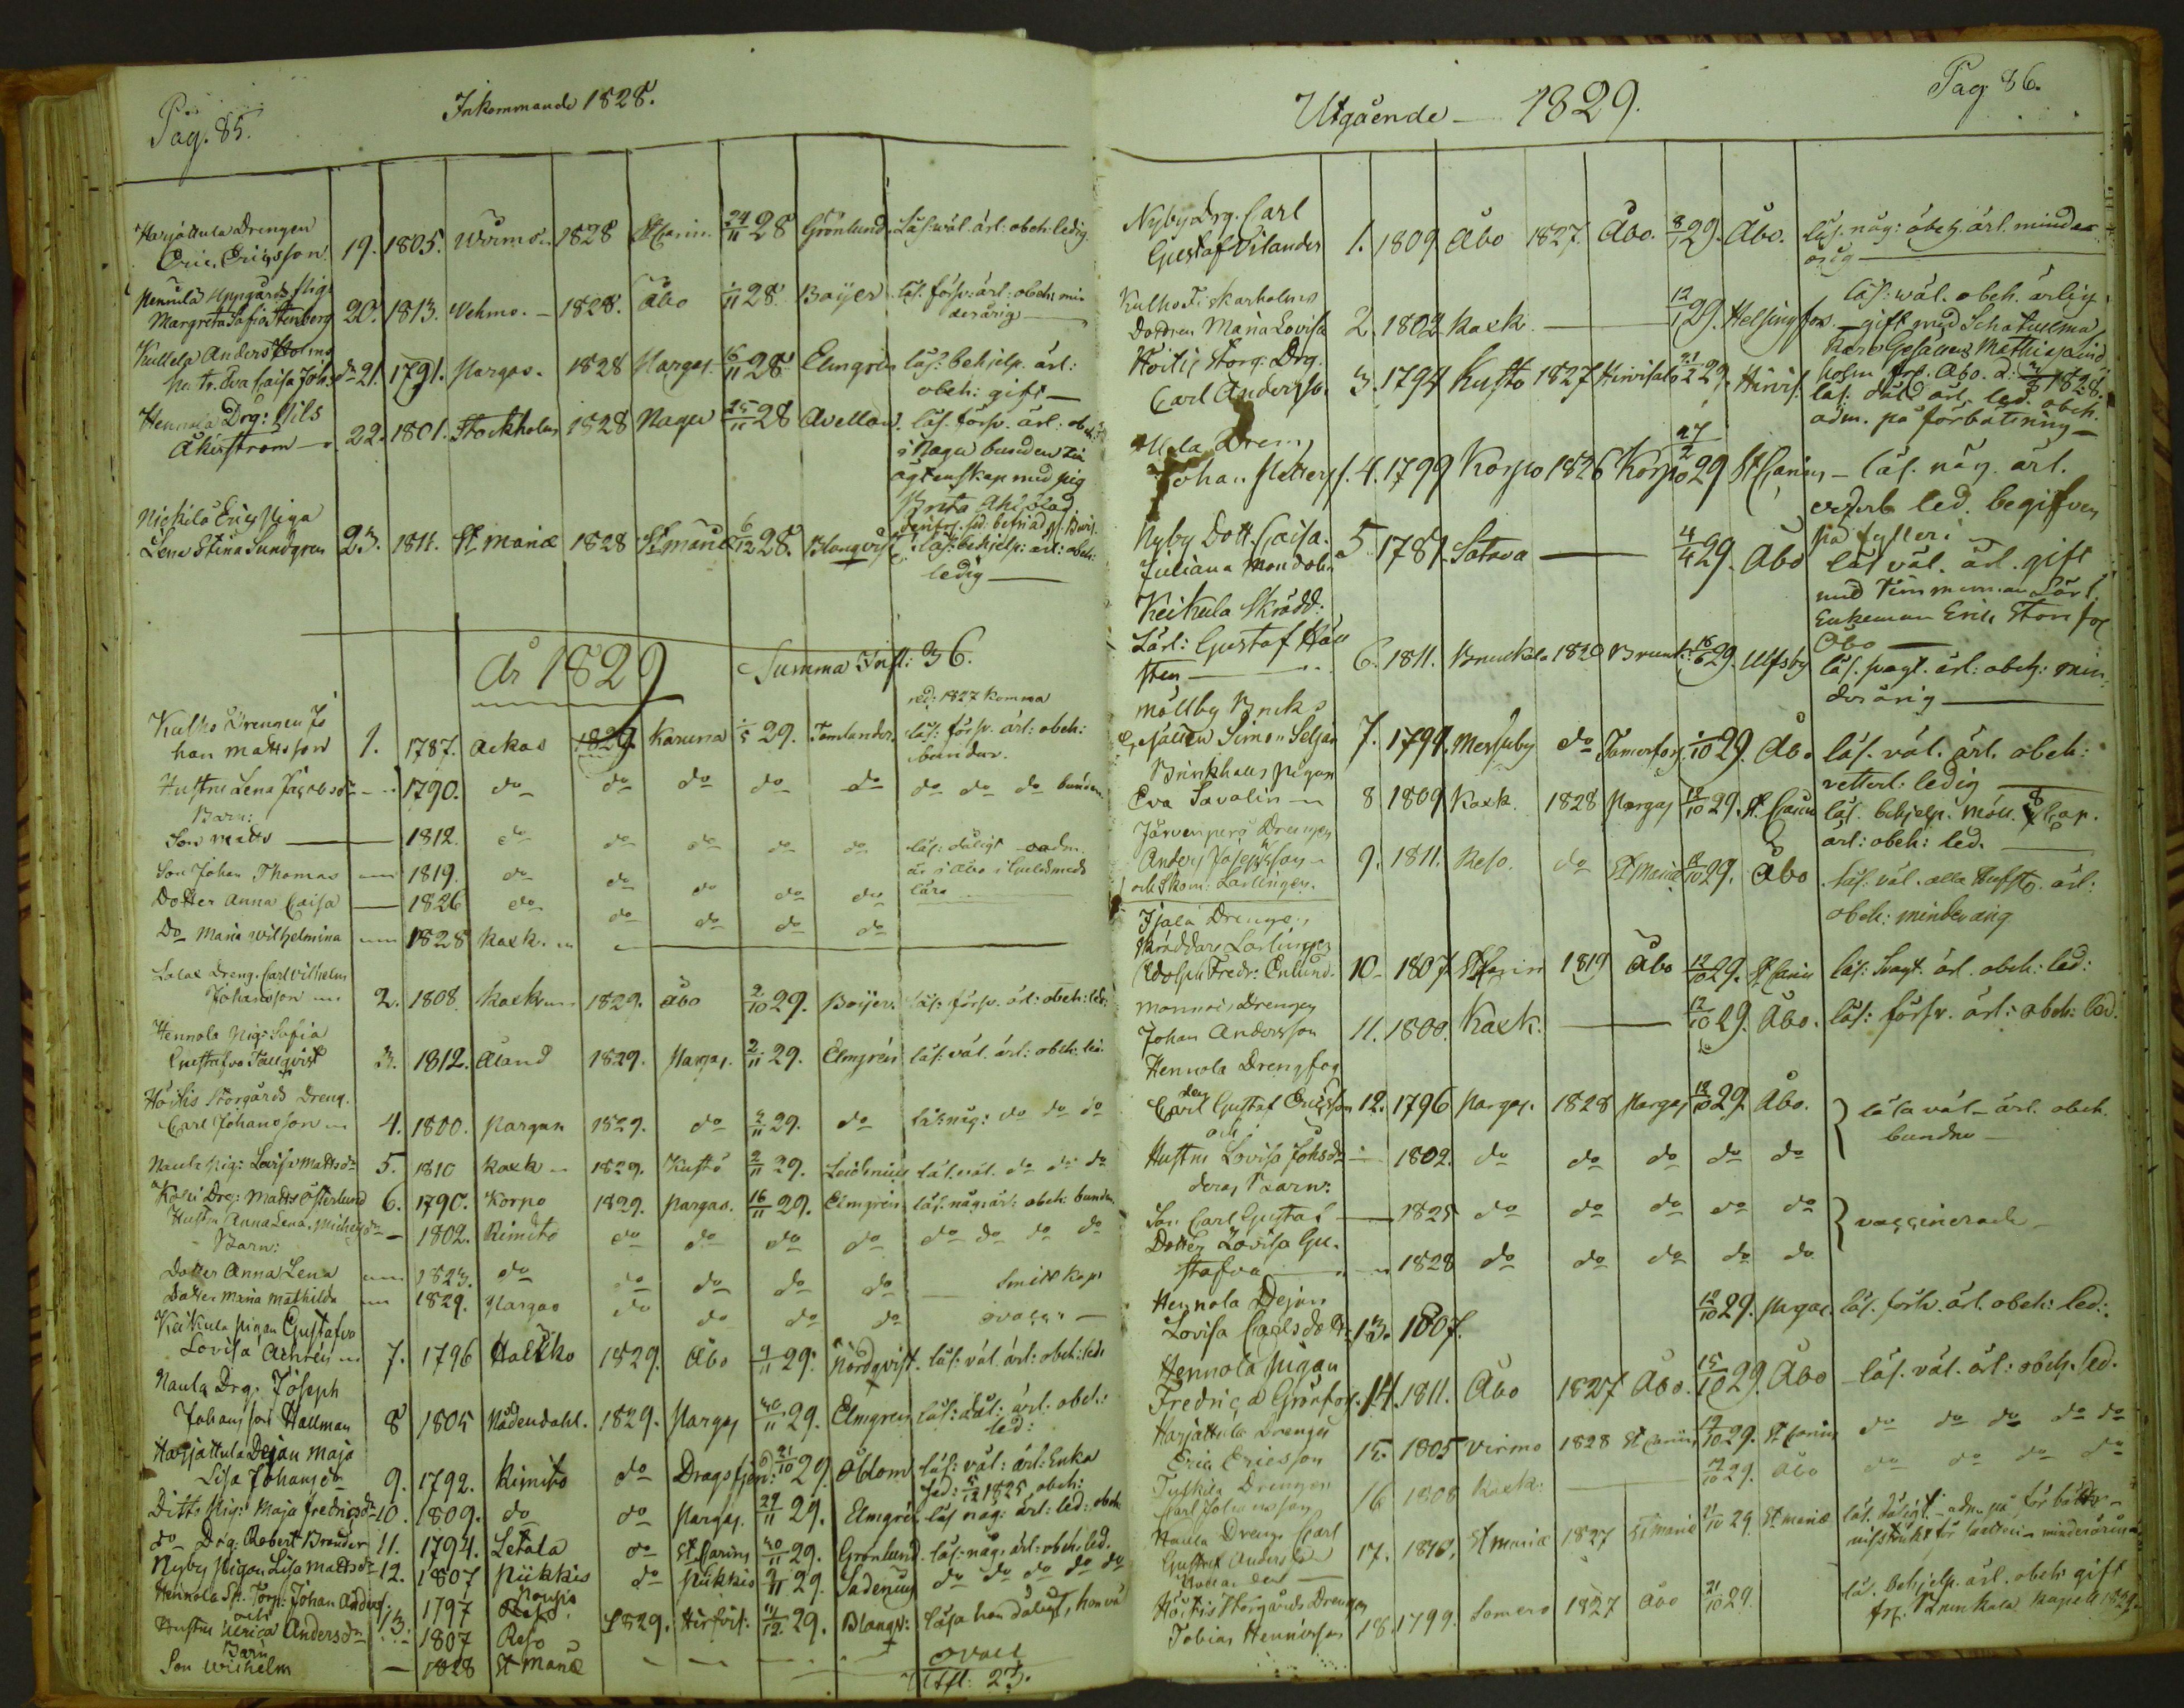 Pag. 85.
Inkommande 1828.
Harjättula Drengen
Eric Ericsson 19. 1805. Wirmo. 1828 St Carin. 24/11 28 Grönlund Läs. wäl. ärl: obeh: ledig.
Uppgårds Pig:
Margreta Sofia Stenberg 20. 1813. Wehmo. 1828. Åbo 1/11 28 Boijer läs. försv: ärl: obeh: min
derårig
Kullela Anders Holms
hu tr. Eva Caisa Joh: dr 21. 1791. Pargas. 1828 Pargas 16/11 28 Elmgrén läs: behjelp. ärl:
obeh: gift
Hennola Drg: Nils
Åkerström 22. 1801. Stockholm 1828 Nagu 25/11 28 Avellan. läs. försv. ärl: obeh:
i Nagu bunden
ägtenskap med pig
Brita
Eric Piga
Lena Stina Sundgren 23. 1811. St Mariæ 1828 St Mariæ 6/12 28. Blanqvist läs: behjelp: ärl: obeh:
ledig
År 1829 Summa Infl: 36.
red: 1827 komma
Kulho Drengen Jo
han Mattsson 1. 1787. Ackas 1829. Karuna 1/5 29. Temlander. läs: försv. ärl: obeh:
bunden.
Hustru Lena Jacobsdr 1790. do do do do do do do do bunden
Barn:
Son Matts 1812. do do do do do läs: dåligt adm.
Son Johan Thomas 1819. do do do do do är i Åbo i Guldsmeds
Dotter Anna Caisa 1826 do do do do do lära
Do Maria Wilhelmina 1828 Kaxk.
Dreng. Carl Vilhelm
Johansson 2. 1808. Kaxk. 1829. Åbo 2/10 29. Boijer. läs. försv. ärl: obeh: led:
Hennola Pig: Sofia
Gustafva Tallqvist 3. 1812. Åland 1829. Pargas. 2/11 29. Elmgrén läs: väl. ärl: obeh: led.
Höitis Storgårds Dreng.
Carl Johansson 4. 1800. Pargas 1829. do 2/11 29. do läs: någ: do do do
Naula Pig: Lovisa Mattsdr 5. 1810 Kaxk 1829. Kustö 2/11 29. läs. väl. do do do
Drg: Matts Österlund 6. 1790. Korpo 1829. Pargas. 16/11 29. Elmgrén läs. någ: ärl: obeh: bunden
Hustru Anna Lena Michelsdr 1802. Kimito do do do do do do do do
Barn:
Dotter Anna Lena 1823. do do do do do Smitt kop:
Dotter Maria Mathilda 1829. Pargas do do do do ovacc:
Keikula Pigan Gustafva
Lovisa 7. 1796 Halikko 1829. Åbo 9/11 29. Nordqvist. läs: väl. ärl: obeh: led:
Naula Drg. Joseph
Johansson Hallman 8 1805 Nådendahl. 1829. Pargas 30/11 29. Elmgren läs: väl: ärl: obeh:
led:
Harjättula Dejan Maja
Lisa Johansdr 9. 1792. Kimito do Dragsfjerd: 21/10 29 Öblom läs: väl: ärl: Enka
sed: 5/12 1825, obeh:
Ditto Pig: Maja Fredricsdr 10. 1809. do do Pargas. 29/11 29. Elmgrén läs någ: ärl: led: obeh:
do Drg: Robert Brander 11. 1794. Letala do St Carins 30/11 29. Grönlund. läs: någ: ärl: obeh. led.
Nyby Pigan Lisa Mattsdr 12. 1807 Piikkis do Piikkis 9/11 29. Sadenius do do do do do
Hennola Sp. Torp: Johan Anders. 1797 Nousis
och 13.
Hustru Ulrica Andersdr 1807 Reso 1829. Hirfvis: 11/12 29. Blanqv: läsa han dåligt, hon väl
Barn
Son Wilhelm 1828 St Mariæ ovacc
Utfl: 23.
Utgående 1829.
Pag. 86.
Nyby Drg. Carl
Gustaf Vilander 1. 1809 Åbo 1827. Åbo. 8/1 29. Åbo. läs. någ: obeh. ärl. minder
årig
Kulho Fiskarholms
Dottren Maria Lovisa 2. 1802 Kaxk. 12/1 29. Helsingfors läs: wäl. obeh. ärlig
gift med
Gesällen Mathias
Höitis Storg: Drg.
Carl Anderss. 3. 1794 Kusto 1827 Hirvisalo 21/2 29. Hirvis. läs: dål. ärl. led. obeh.
adm. på förbättring
Dreng
Johan Petterss. 4. 1799 Korpo 1826 Korpo 27/2 29 St Carins läs. någ. ärl.
led. begifven
på fylleri
Nyby Dott. Caisa
Juliana 5 1781. Satava 4/4 29. Åbo läs väl. ärl. gift
med Timmerman Lärl.
Enkeman Eric
Åbo
Keikula Skrädd:
Lärl: Gustaf Häll
sten 6. 1811. Brunkala 1820 Brunk: 18/6 29. Ulfsby läs. svagt. ärl: obeh: min
derårig
Möllby Bruks
Gesällen Simon Seljan 7. 1794. Messuby do Tamerfors. 1/10 29. Åbo läs. väl. ärl. obeh:
vetterl: ledig
Brinkhalls Pigan
Eva Savalin 8 1809 Kaxk. 1828 Pargas 12/10 29. St Carin läs. behjelp.
ärl: obeh: led.
Järvenperä Drengen
Anders Josephsson 9. 1811. Reso. do St Mariæ 12/10 29. Åbo läs: väl. alla Hufst. ärl:
och Skom: Lärlingen. obeh: minderårig
Isjala Drengen,
Skräddare Lärlingen
Adolph Fredr: Enlund. 10 1807 St Carin 1819 Åbo 12/10 29. St Carin läs: svagt. ärl. obeh: led:
Monnois Drengen
Johan Andersson 11. 1800. Kaxk. 12/10 29. Åbo. läs: försv. ärl: obeh: led.
Hennola Drengfog
den
Carl Gustaf Ericsson 12. 1796 Pargas. 1828 Pargas 12/10 29. Åbo. läsa väl. ärl. obeh.
och bundne
Hustru Lovisa Johsdr 1802. do do do do do
deras Barn:
Son Carl Gustaf 1825 do do do do do vaccinerade
Dotter Lovisa Gu-
stafva 1828 do do do do do
Hennola Dejan
Lovisa Carlsdotter 13. 1807. 12/10 29. Pargas läs. försv. ärl. obeh: led:
Hennola Pigan
Fredrica Grönfors. 14. 1811. Åbo 1827 Åbo. 15/10 29. Åbo läs. väl. ärl: obeh. led.
Harjättula Drengen
Eric Ericsson 15. 1805 Virmo 1828 St Carins 17/10 29. St Carins do do do do do
Drengen
Carl Johansson 16. 1808 Kaxk: 19/10 29. Åbo do do do do
Naula Dreng. Carl
Gustaf Andersson 17. 1810. St Mariæ 1827 St Mariæ 21/10 29. St Mariæ läs. dåligt. adm. på förbättr-
Höitis Storgårds Drengen
Tobias Henricsson 18. 1799. Somero 1827 Åbo 21/10 29. läs. behjelp. ärl. obeh: gift
frs. Brunkala Kapell 1829.